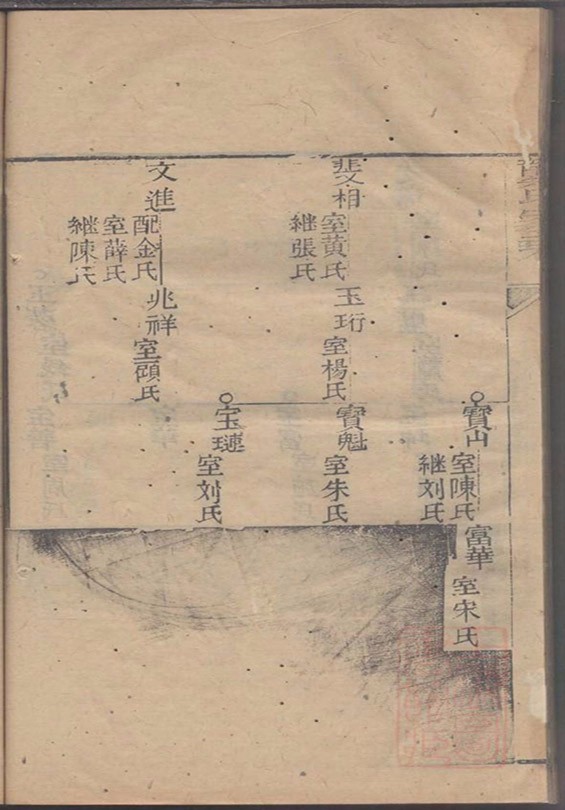 斐相
室黄氏
继張氏
玉珩
室楊氏
寳山
室陳氏
継刘氏
富華
室宋氏
寳魁
室朱氏
宝璉
室刘氏
文進
配金氏
室薛氏
継陳氏
兆祥
室顾氏